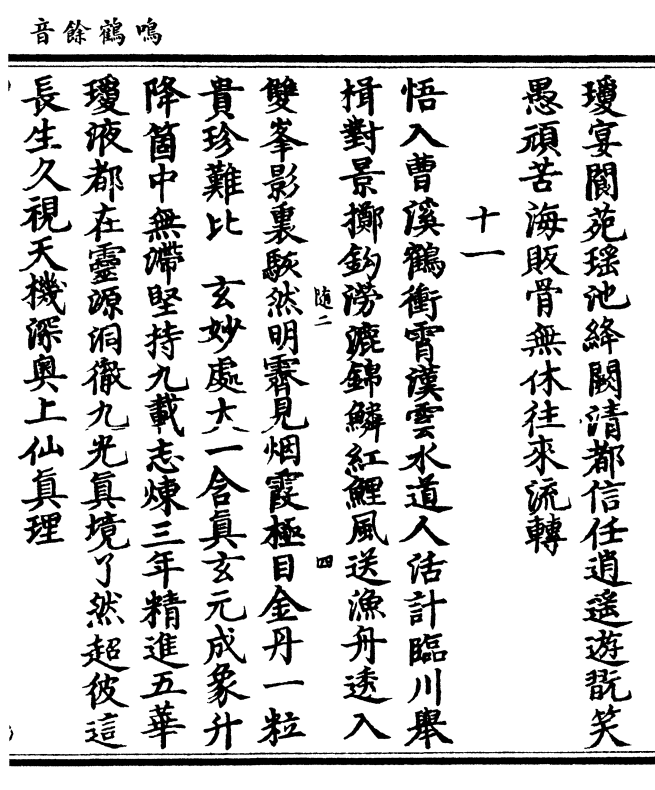 鳴鶴餘音
瓊宴閬苑瑶池絳闕清都信任逍遥遊翫笑
愚頑苦海販骨無休往來流轉
十一
悟入曹溪鶴衝霄漢雲水道人活計臨川舉
楫對景擲鈎澇漉錦鱗紅鯉風送漁舟透入
隨二 四
雙峯影裏駭然明霽見烟霞極目金丹一粒
貴珍難比 玄妙處大一含真玄元成象升
降箇中無滯堅持九載志煉三年精進五華
瓊液都在靈源洞徹九光真境了然超彼這
長生久視天機深奥上仙真理